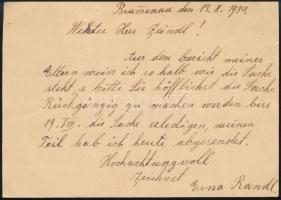 Blumenau den 13.8.1914
Werter Herr Zündl!
Aus dem bericht meiner
Eltern weiss ich so halb wie die Sache
steht, u bitte Sie höfflichst die Sache
Rückgängig zu machen werden biss
19.VIII. die Sache erledigen, meinen
Teil hab ich heute abgesendet.
Hochachtungvoll
Zeichnet
Erna Randl